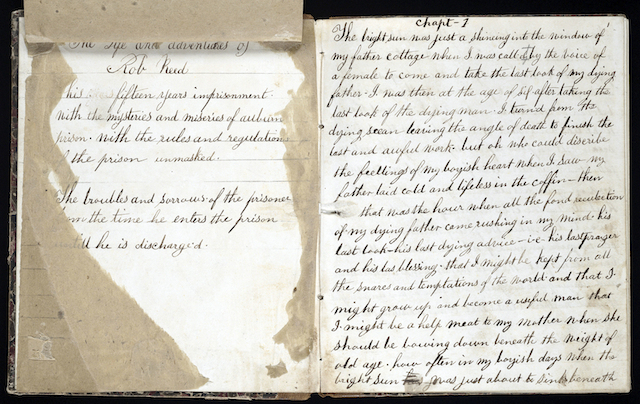 The Life and adventures of
Rob Reed
his fifteen years imprisonment
With the mysteries and miseries of auburn
prison. With the rules and regulations
of the prison unmasked.
The troubles and sorrows of the prisoner
from the time he enters the prison
till he is discharged.
Chapt-1
The bright sun was just a shineing into the window of
my father cottage when I was calld by the voice of
a female to come and take the last look of my dying
father. I was then at the age of six after taking the
last look of the dying man. I turn'd from the
dying scean leaving the angle of death to finish the
last and awful work. but oh who could discribe
the feellings of my boyish heart when I saw my
father laid cold and lifeless in the coffin - then
that was the hour when all the fond recolection
of my dying father came rushing in my mind. his
last look - his last dying advice - his last prayer
and his las blessing. that I might be kept from all
the snares and temptations of the world and that I
might grow up and become a useful man that
I might be a help meat to my Mother when she
should be bowing down beneath the weight of
old age. how often in my boyish days when the
bright sun was just about to sink beneath